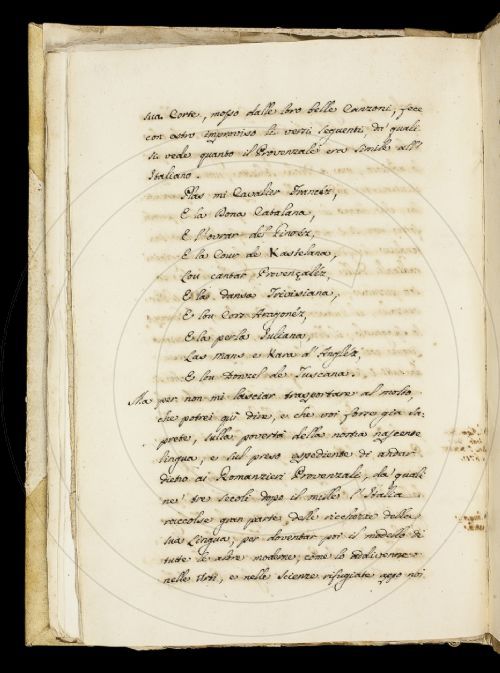 sua Corte, mosso dalle loro belle Canzoni, fece
con estro improviso li versi seguenti, da' quali
si vede quanto il Provenzale era simile all'
Italiano.
Plas mi Cavalier Francéz,
E la Dona Catalana,
E l'ovrar del Ginoéz,
E la Cour de Kastelana,
Lou cantar Provençaléz,
E la dansa Trivisiana,
E lou Corr Aragonéz,
E la perla Juliana,
Las mans e Kara d'Angléz,
E lou Donzel de Tuscana.
Ma per non mi lasciar trasportare al molto,
che potrei qui dire, e che voi forse già sa-
prete, sulla povertà della nostra nascente
lingua, e sul preso espediente di andar
dietro ai Romanzieri Provenzali, da' quali
ne' tre secoli dopo il mille l'Italia
raccolse gran parte delle ricchezze della
sua Lingua, per doventar poi il modello di
tutte le altre moderne, come lo divenne
nelle Arti, e nelle scienze rifugiate appo noi